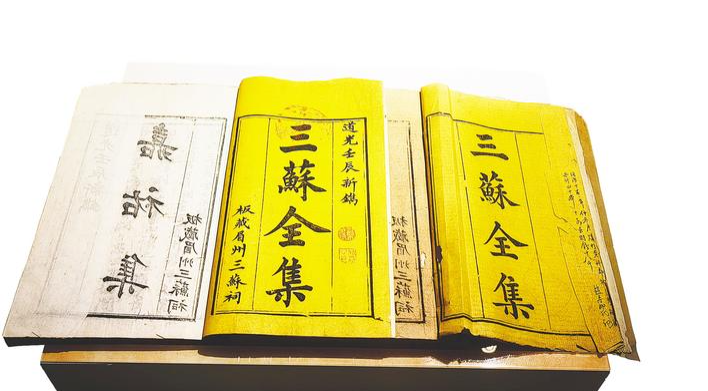 嘉祐集
板藏眉州三蘇祠
道光壬辰新鐫
三蘇全集
板藏眉州三蘇祠
板藏眉州三蘇祠
三蘇全集